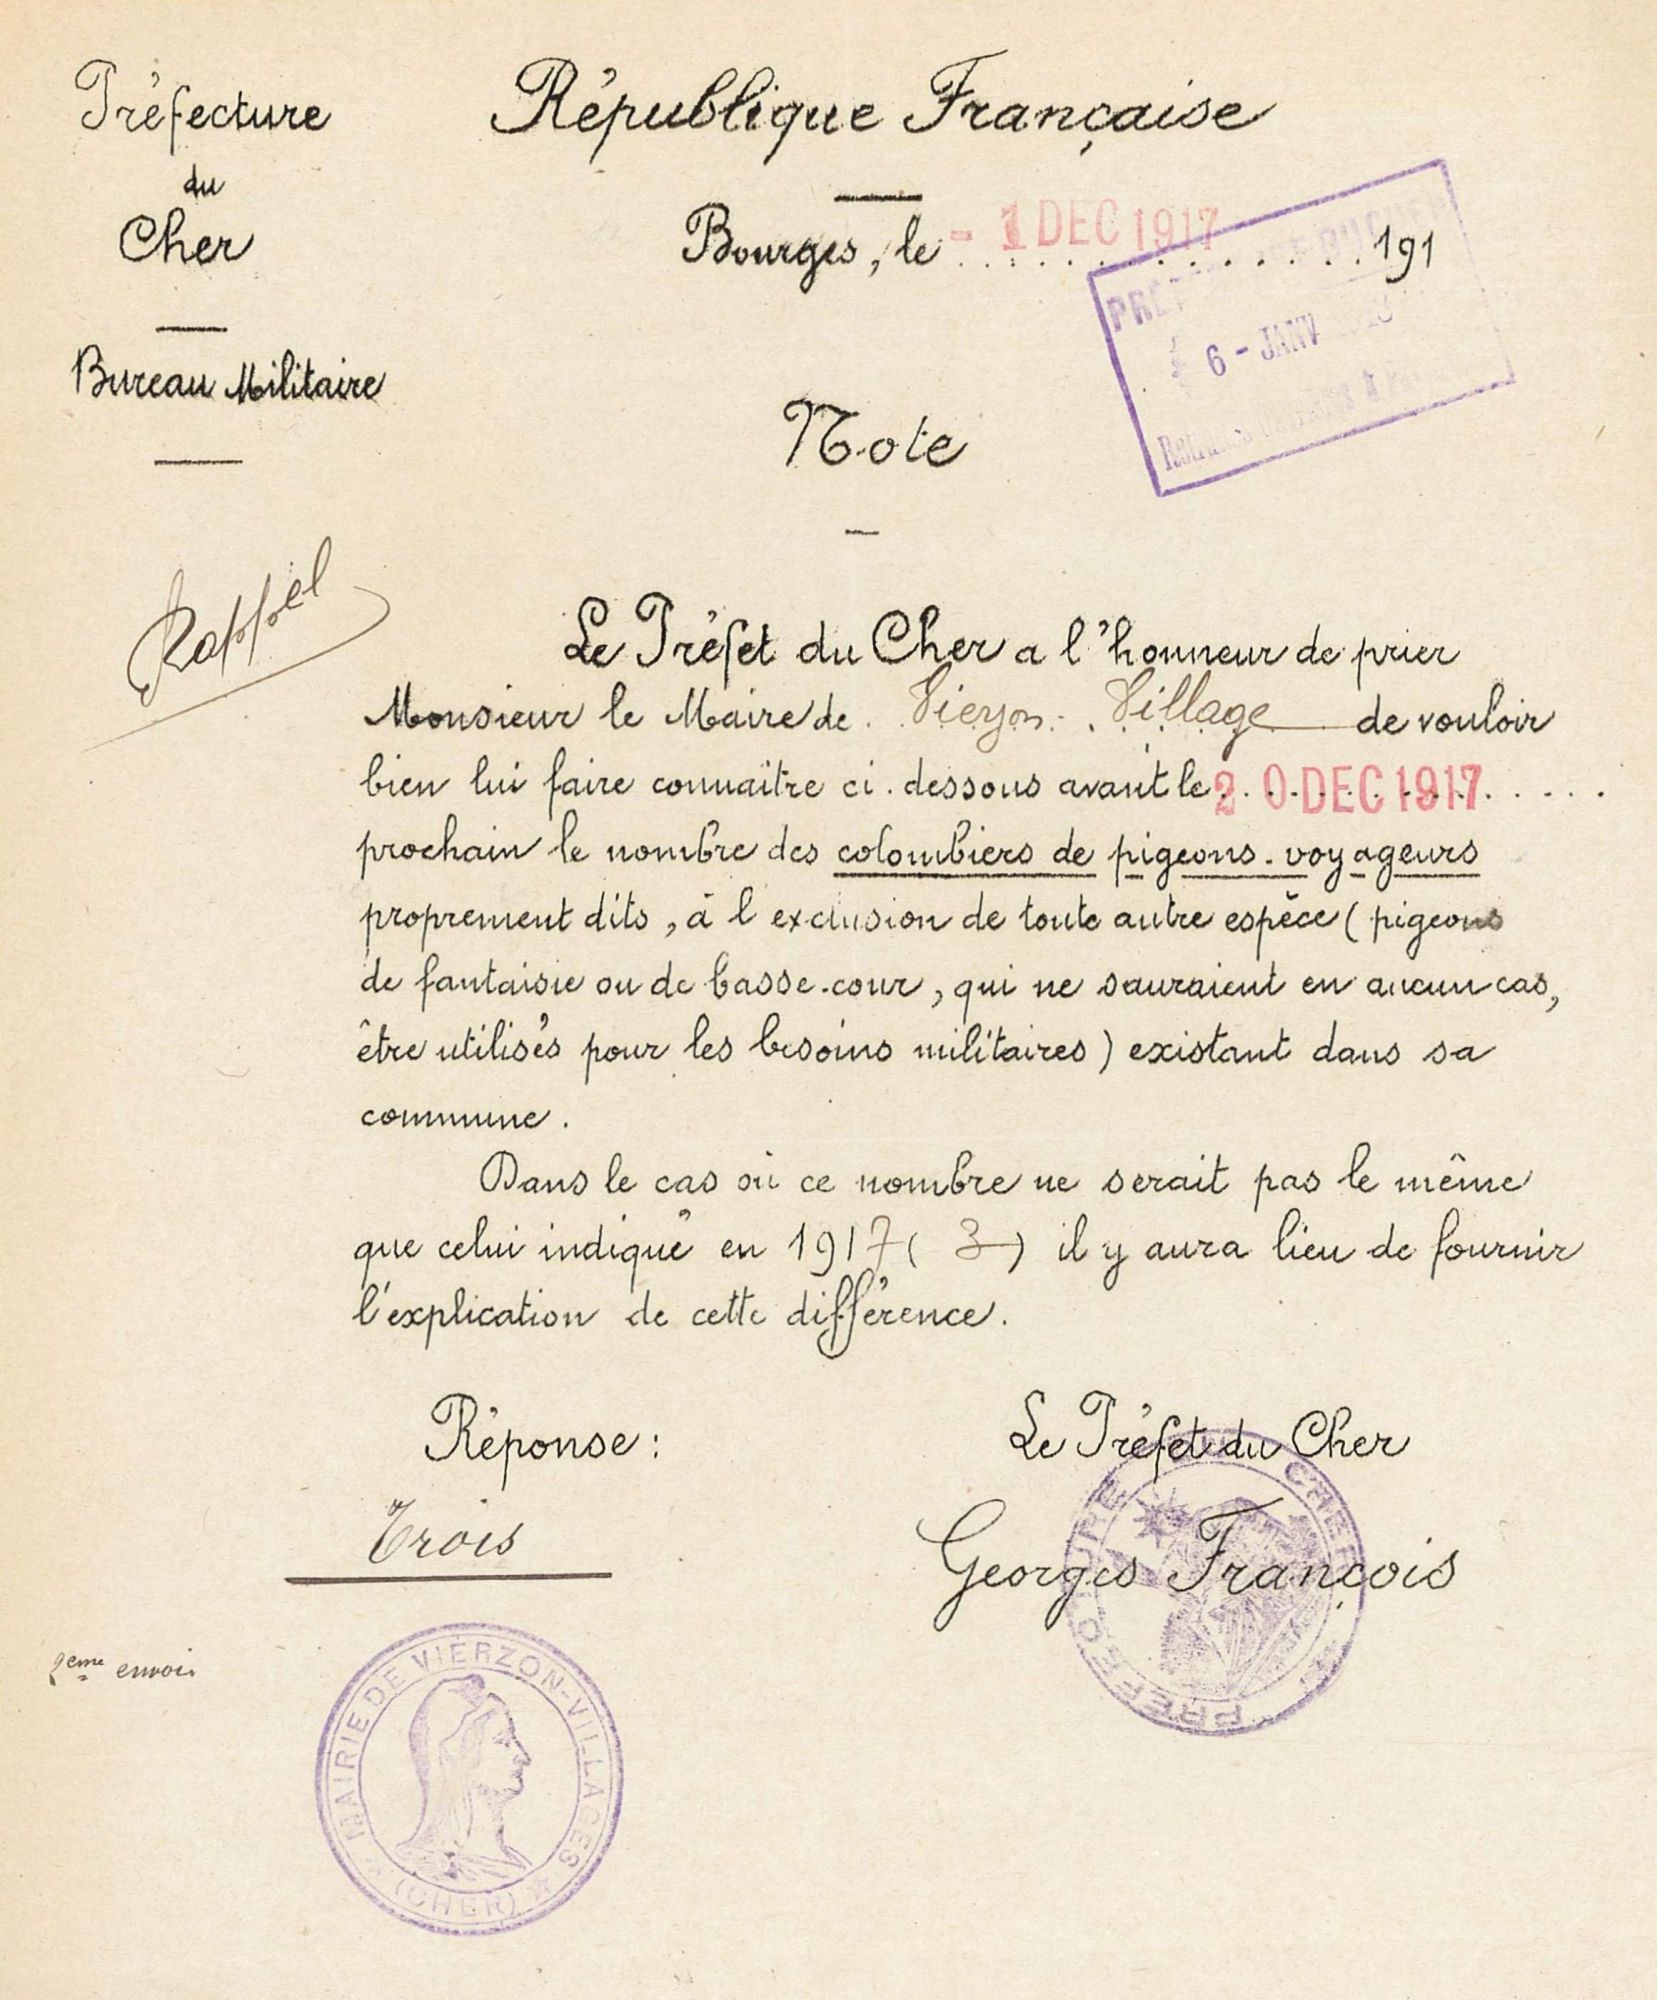 Préfecture
du
Cher
Bureau Militaire
République Française
Bourges, le - 1 DEC 1917 191
6 - JANV
Note
Rappel
Le Préfet du Cher a l'honneur de prier
Monsieur le Maire de Vierzon-Village de vouloir
bien lui faire connaître ci-dessous avant le 20 DEC 1917
prochain le nombre des colombiers de pigeons-voyageurs
proprement dits, à l'exclusion de toute autre espèce (pigeons
de fantaisie ou de basse-cour, qui ne sauraient en aucun cas,
être utilisés pour les besoins militaires) existant dans sa
commune.
Dans le cas où ce nombre ne serait pas le même
que celui indiqué en 1917 ( 3 ) il y aura lieu de fournir
l'explication de cette différence.
Réponse :
Trois
Le Préfet du Cher
Georges François
PREFECTURE CHER
2eme envoi
MAIRIE DE VIERZON-VILLAGES
(CHER)